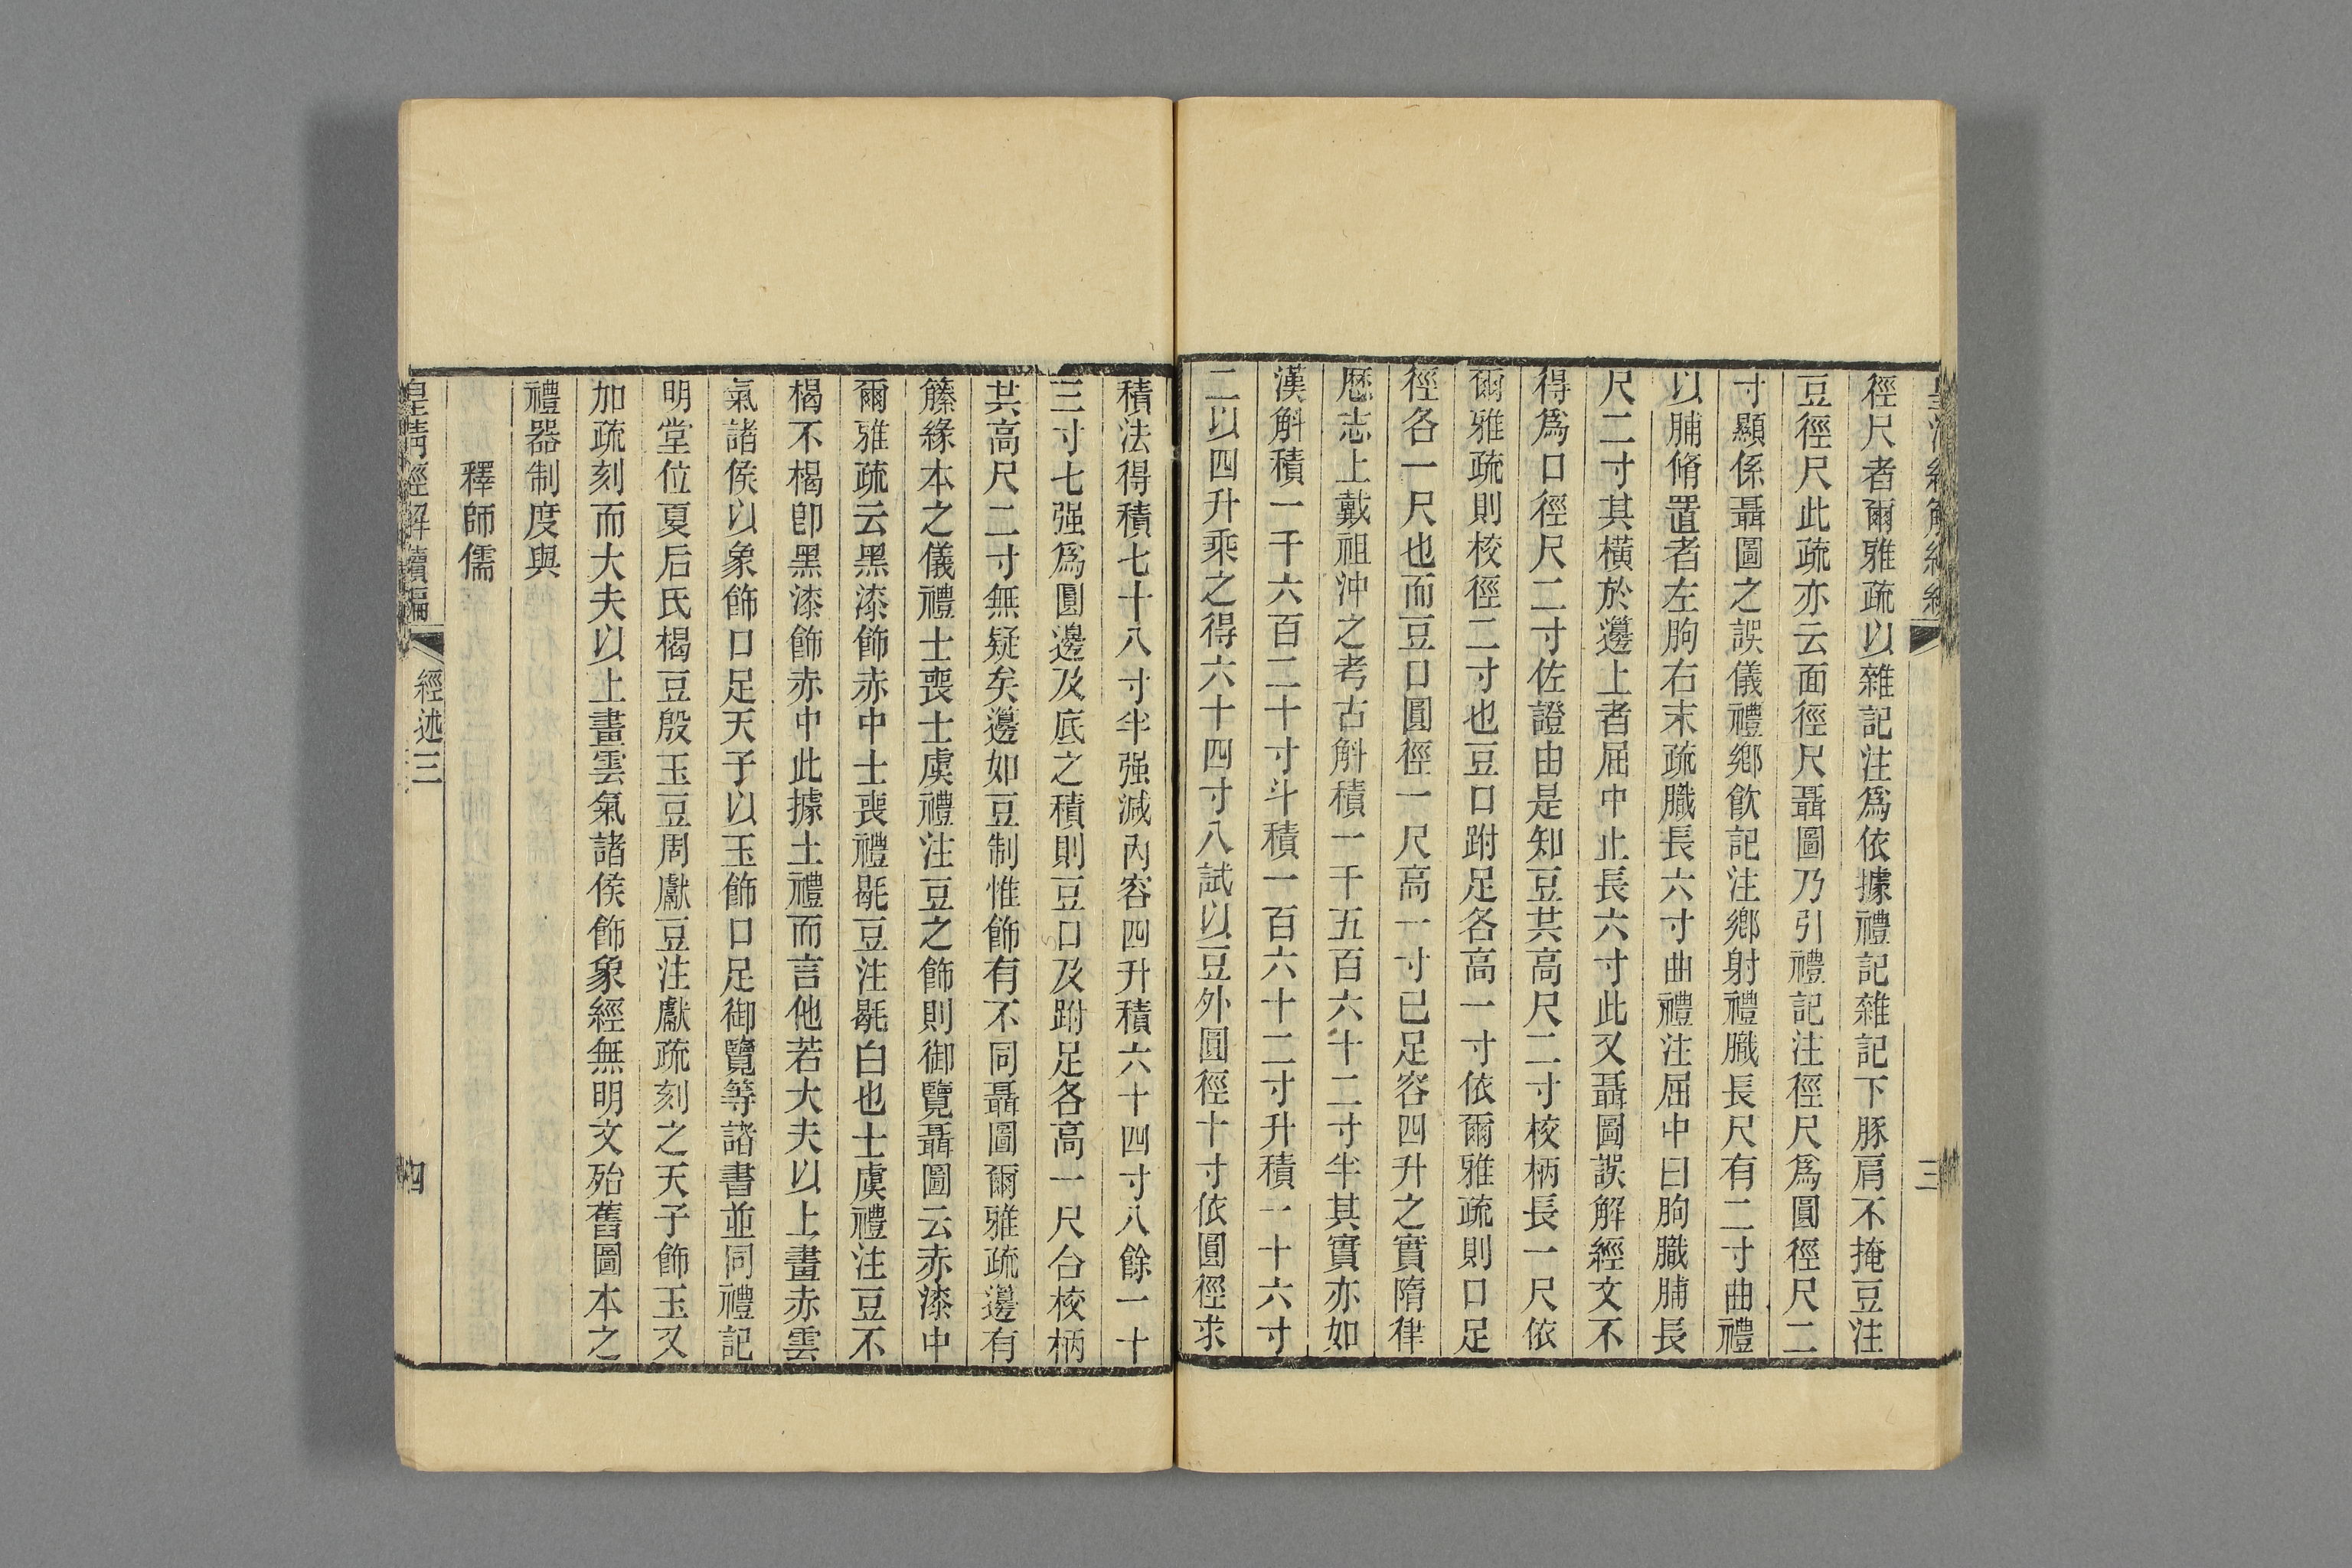 徑尺者爾雅疏以雜記注爲依據禮記雜記下豚肩不掩豆注
豆徑尺此疏亦云面徑尺聶圖乃引禮記注徑尺爲圓徑尺二
寸顯係聶圖之誤儀禮鄉飮記注鄉射禮膱長尺有二寸曲禮
以脯脩置者左朐右末疏膱長六寸曲禮注屈中曰朐膱脯長
尺二寸其橫於籩上者屈中止長六寸此又聶圖誤解經文不
得爲口徑尺二寸佐證由是知豆其高尺二寸校柄長一尺依
爾雅疏則校徑二寸也豆口跗足各高一寸依爾雅疏則口足
徑各一尺也而豆口圓徑一尺高一寸已足容四升之實隋律
厯志上載祖沖之考古斛積一千五百六十二寸半其實亦如
漢斛積一千六百二十寸斗積一百六十二寸升積一十六寸
二以四升乘之得六十四寸八試以豆外圓徑十寸依圓徑求
積法得積七十八寸半强減內容四升積六十四寸八餘一十
三寸七强爲圓邊及底之積則豆口及跗足各高一尺合校柄
其高尺二寸無疑矣籩如豆制惟飾有不同聶圖爾雅疏籩有
籐緣本之儀禮士喪士虞禮注豆之飾則御覽聶圖云赤漆中
爾雅疏云黑漆飾赤中士喪禮毼豆注毼白也士虞禮注豆不
楬不楬卽黑漆飾赤中此據士禮而言他若大夫以上畫赤雲
氣諸侯以象飾口足天子以玉飾口足御覽等諸書並同禮記
明堂位夏后氏楬豆殷玉豆周獻豆注獻疏刻之天子飾玉又
加疏刻而大夫以上畫雲氣諸侯飾象經無明文殆舊圖本之
禮器制度與
釋師儒
皇淸經解續編 經述三 四